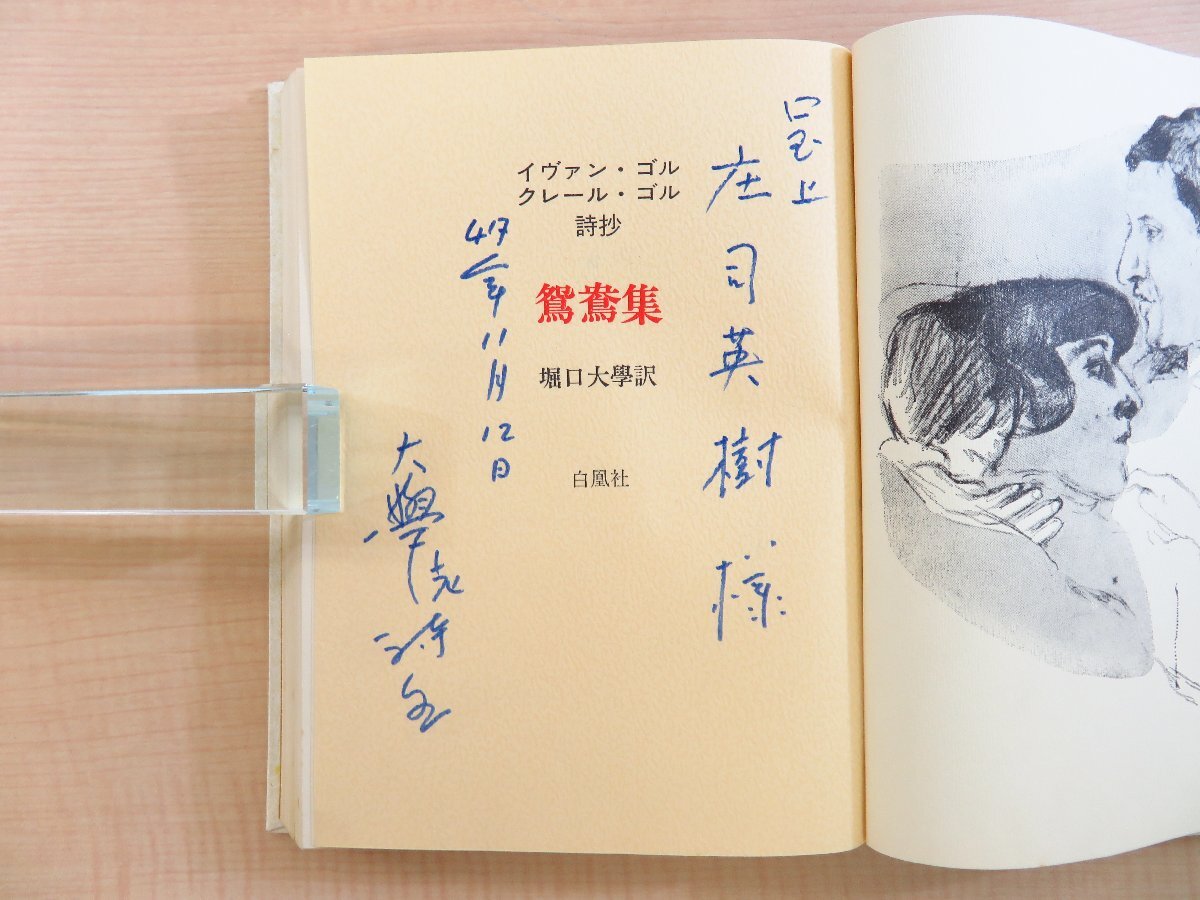 呈上
庄司英樹様
イヴァン・ゴル
クレール・ゴル
詩抄
鴛鴦集
堀口大學訳
白凰社
47年11月12日
大學老詩生